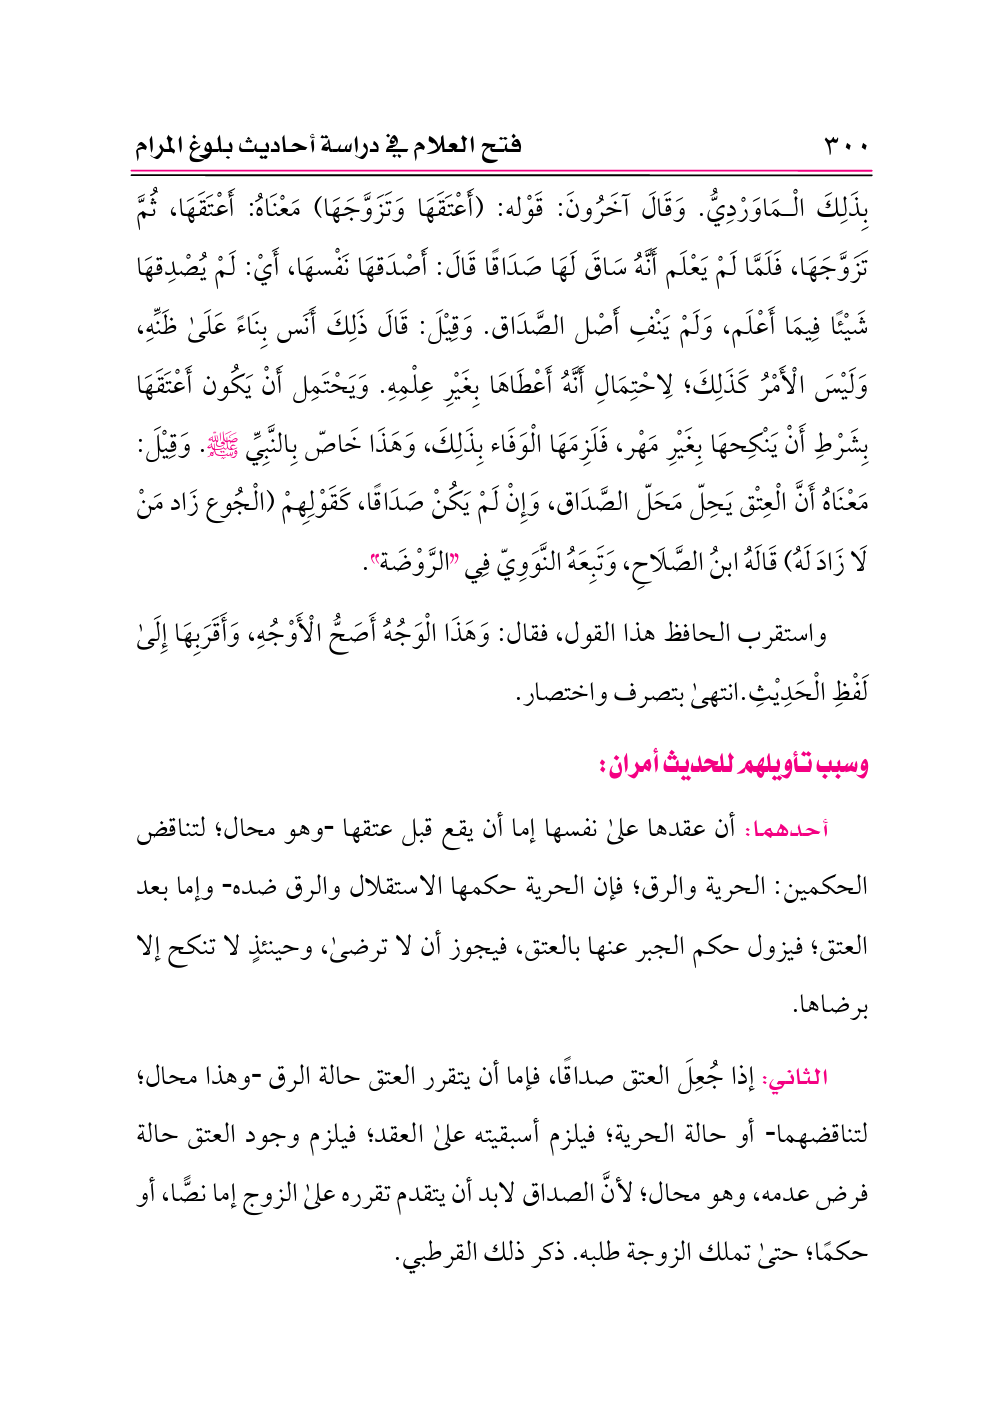 ٣٠٠ فتح العلام في دراسة أحاديث بلوغ المرام
بِذَلِكَ الْـمَاوَرْدِيُّ. وَقَالَ آخَرُونَ: قَوْله: (أَعْتَقَهَا وَتَزَوَّجَهَا) مَعْنَاهُ: أَعْتَقَهَا، ثُمَّ
تَزَوَّجَهَا، فَلَمَّا لَمْ يَعْلَم أَنَّهُ سَاقَ لَهَا صَدَاقًا قَالَ: أَصْدَقهَا نَفْسهَا، أَيْ: لَمْ يُصْدِقهَا
شَيْئًا فِيمَا أَعْلَم، وَلَمْ يَنْفِ أَصْل الصَّدَاق. وَقِيْلَ: قَالَ ذَلِكَ أَنَس بِنَاءً عَلَىٰ ظَنِّهِ،
وَلَيْسَ الْأَمْرُ كَذَلِكَ؛ لِاحْتِمَالِ أَنَّهُ أَعْطَاهَا بِغَيْرِ عِلْمِهِ. وَيَحْتَمِل أَنْ يَكُون أَعْتَقَهَا
بِشَرْطِ أَنْ يَنْكِحهَا بِغَيْرِ مَهْر، فَلَزِمَهَا الْوَفَاء بِذَلِكَ، وَهَذَا خَاصّ بِالنَّبِيِّ ﷺ. وَقِيْلَ:
مَعْنَاهُ أَنَّ الْعِتْق يَحِلّ مَحَلّ الصَّدَاق، وَإِنْ لَمْ يَكُنْ صَدَاقًا، كَقَوْلِهِمْ (الْجُوع زَاد مَنْ
لَا زَادَ لَهُ) قَالَهُ ابنُ الصَّلَاحِ، وَتَبِعَهُ النَّوَوِيّ فِي ”الرَّوْضَة“.
واستقرب الحافظ هذا القول، فقال: وَهَذَا الْوَجْهُ أَصَحُّ الْأَوْجُهِ، وَأَقَرَبِهَا إِلَىٰ
لَفْظِ الْحَدِيْثِ.انتهىٰ بتصرف واختصار.
وسبب تأويلهم للحديث أمران:
أحدهما: أن عقدها علىٰ نفسها إما أن يقع قبل عتقها -وهو محال؛ لتناقض
الحكمين: الحرية والرق؛ فإن الحرية حكمها الاستقلال والرق ضده- وإما بعد
العتق؛ فيزول حكم الجبر عنها بالعتق، فيجوز أن لا ترضىٰ، وحينئذٍ لا تنكح إلا
برضاها.
الثاني: إذا جُعِلَ العتق صداقًا، فإما أن يتقرر العتق حالة الرق -وهذا محال؛
لتناقضهما- أو حالة الحرية؛ فيلزم أسبقيته علىٰ العقد؛ فيلزم وجود العتق حالة
فرض عدمه، وهو محال؛ لأنَّ الصداق لابد أن يتقدم تقرره علىٰ الزوج إما نصًّا، أو
حكمًا؛ حتىٰ تملك الزوجة طلبه. ذكر ذلك القرطبي.